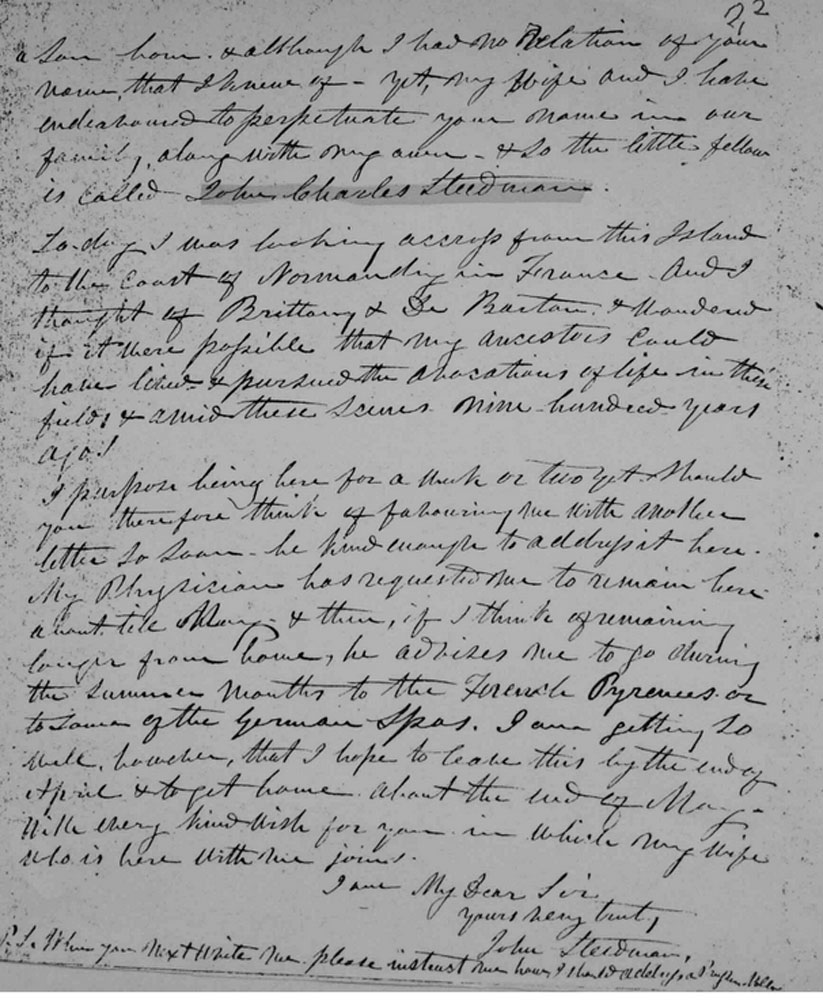 22
a Son born. & although I had no Relation of your
name, that I knew of - yet, my Wife and I have
endeavoured to perpetuate your name in our
family, along with my own - & so the little fellow
is called John Charles Steedman.
To-day I was looking accross from this Island
to the Coast of Normandy in France. And I
thought of Brittany & De Barton. & Wondered
if it were possible that my ancestors could
have lived & pursued the avocations of life in these
fields & amid these Scenes nine hundred years
ago!
I purpose being here for a week or two yet. Should
you therefore think of favouring me with another
letter so soon - be kind enough to address it here.
My Physician has requested me to remain here
about till May - & then, if I think of remaining
longer from home, he advises me to go during
the Summer Months to the French Pyrenees or
to some of the German Spas. I am getting so
well, however, that I hope to leave this by the end of
April & to get home about the end of May -
With every kind wish for you in which my Wife
who is here with me joins.
I am My Dear Sir
yours very truly,
John Steedman,
P.S. When you next write me please instruct me how I should address a